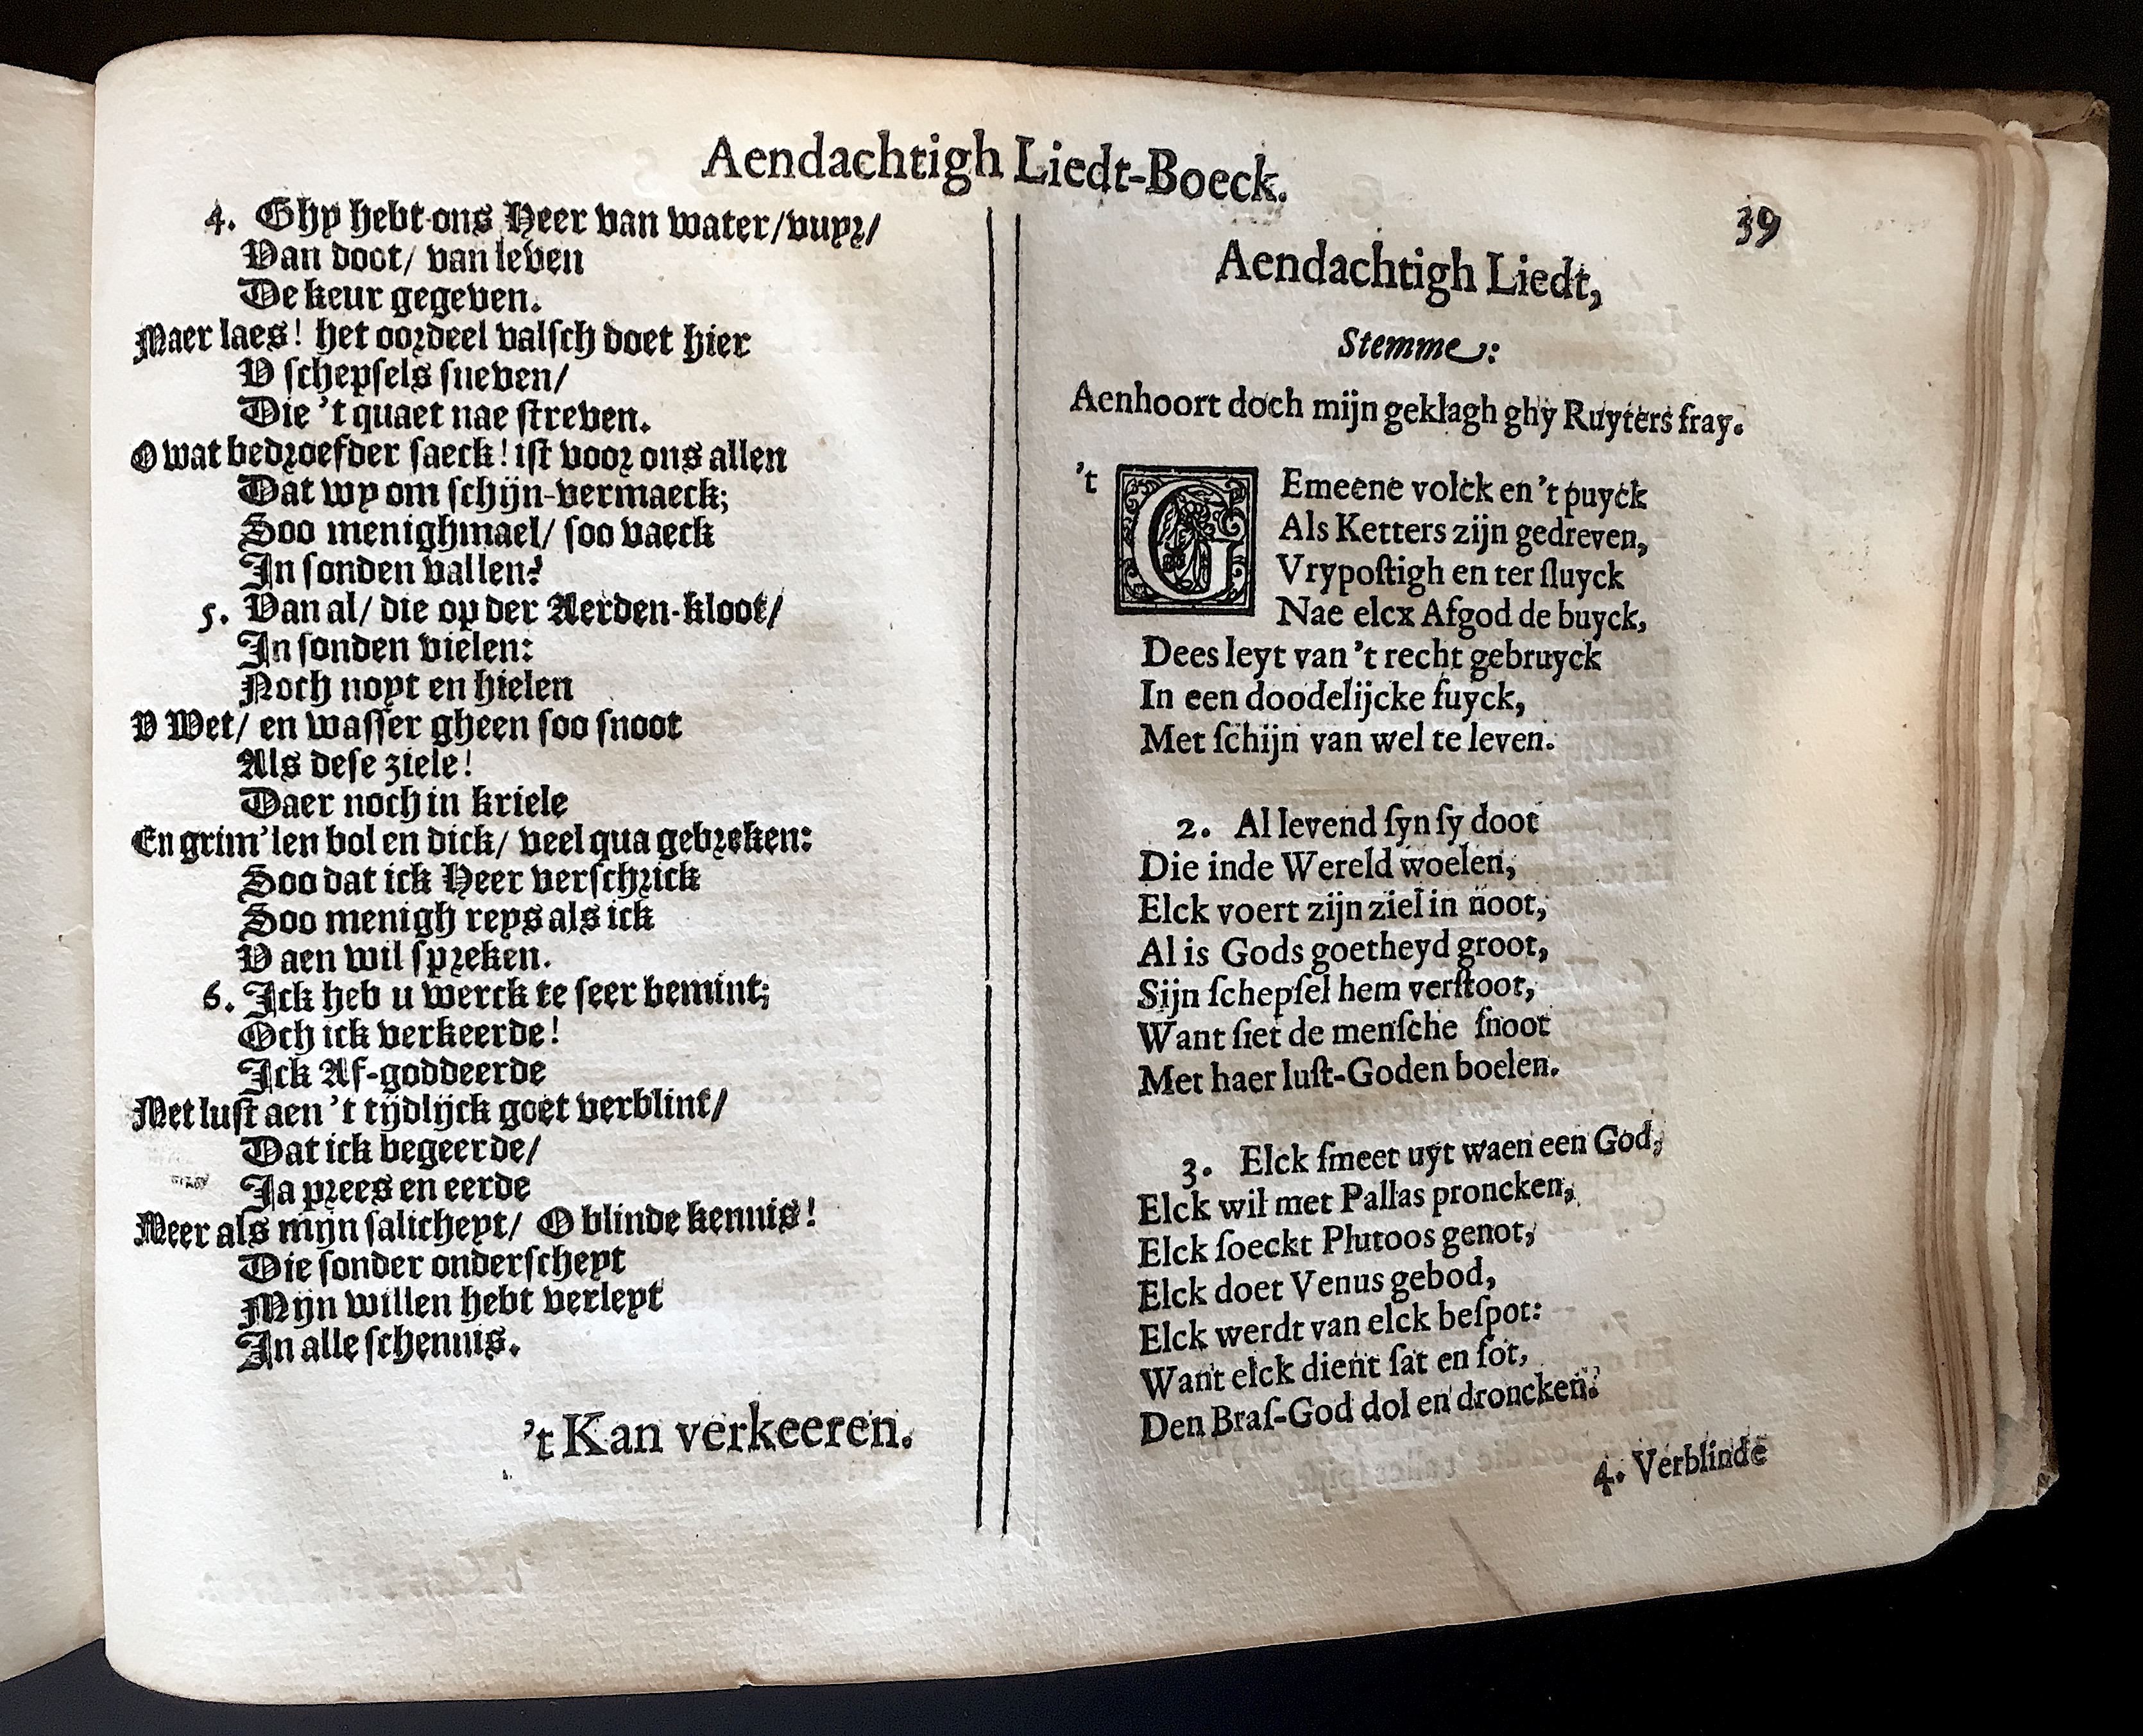 Aendachtigh Liedt-Boeck.
4. Ghy hebt ons Heer van water/vuyr/
Van doot/ van leven
De keur gegeven.
Maer laes! het oordeel valſch doet hier
V ſchepſels ſneven/
Die 't quaet nae ſtreven.
O wat bedroefder ſaeck! iſt voor ons allen
Dat wy om ſchijn-vermaeck;
Soo menighmael/ ſoo vaeck
In ſonden vallen?
5. Van al/ die op der Aerden-kloot/
In ſonden vielen:
Noch noyt en hielen
V Wet/ en waſſer gheen ſoo ſnoot
Als deſe ziele!
Daer noch in kriele
En grim'len bol en dick/ veel qua gebreken:
Soo dat ick Heer verſchrick
Soo menigh reys als ick
V aen wil ſpreken.
6. Ick heb u werck te ſeer bemint;
Och ick verkeerde!
Ick Af-goddeerde
Met luſt aen 't tijdlijck goet verblint/
Dat ick begeerde/
Ja prees en eerde
Meer als mijn ſalicheyt/ O blinde kennis!
Die ſonder onderſcheyt
Mijn willen hebt verleyt
In alle ſchennis.
't Kan verkeeren.
39
Aendachtigh Liedt,
Stemme:
Aenhoort doch mijn geklagh ghy Ruyters fray.
't GEmeene volck en 't puyck
Als Ketters zijn gedreven,
Vrypoſtigh en ter ſluyck
Nae elcx Afgod de buyck,
Dees leyt van 't recht gebruyck
In een doodelijcke fuyck,
Met ſchijn van wel te leven.
2. Al levend ſyn ſy doot
Die inde Wereld woelen,
Elck voert zijn ziel in noot,
Al is Gods goetheyd groot,
Sijn ſchepſel hem verſtoot,
Want ſiet de menſche ſnoot
Met haer luſt-Goden boelen.
3. Elck ſmeet uyt waen een God,
Elck wil met Pallas proncken,
Elck ſoeckt Plutoos genot,
Elck doet Venus gebod,
Elck werdt van elck beſpot:
Want elck dient ſat en ſot,
Den Braſ-God dol en droncken.
4. Verblinde